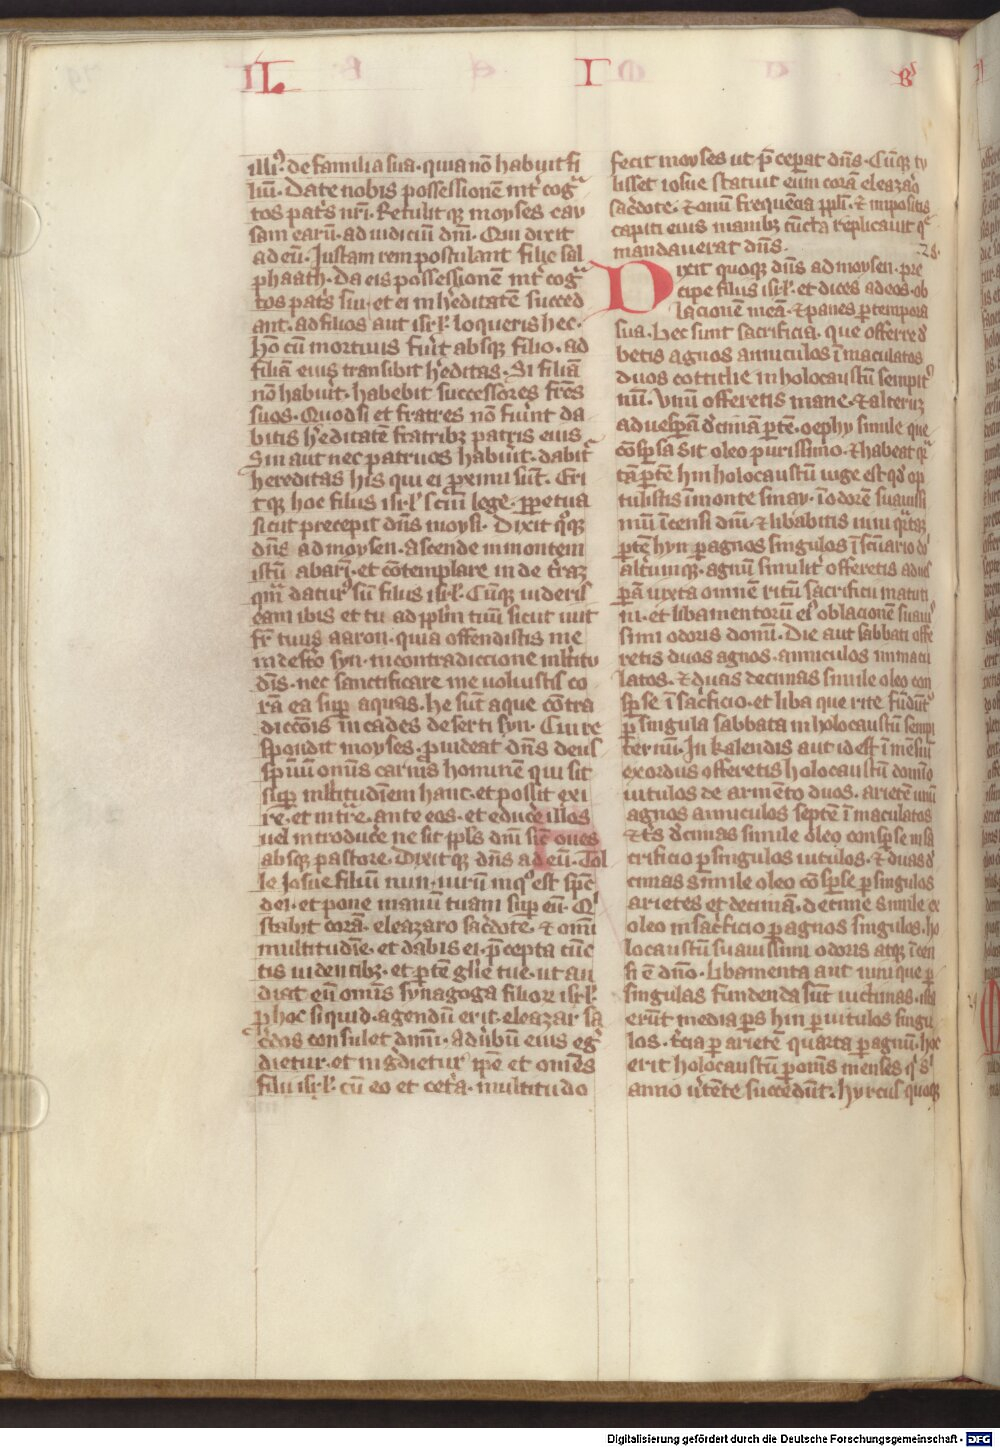 N I gͥ
illiꝰ. de familia sua. quia nō habuit fi
liū. Date nobis possessionē int̄ cogͣ
tos pat̄s nr̄i. Retulitqꝫ moyses cau
sam earū. ad iudiciū dn̄i. Qui dixit
ad eū. Justam rem postulant filie sal
phaath. Da eis possessionē int̄ cogͣ
tos pat̄s sui. et ei in h̄editatē succed
ant. ad filios aut isrl̄. loqueris hec.
Hō cū mortuus fūit absqꝫ filio. ad
filiā eius transibit h̄editas. Si filiā
nō habūit. habebit successores fr̄es
suos. Quod si et fratres nō fūint da
bitis h̄editatē fratribꝫ patris eius
Sin aut nec patruos habūit. dabit̄
hereditas his qui ei ꝓximi sūt. Eri
tqꝫ hoc filiis isrl̄ sc̄m lege. ꝑpetua
sicut precepit dn̄s moysi. Dixit qͦqꝫ
dn̄s ad moysen. Ascende in montem
istū abarī. et cōtemplare inde t̄raꝫ
qm̄ daturꝰ sū filiis isrl̄. Cūqꝫ uideris
eam ibis et tu ad ppl̄m tuū sicut iuit
fr̄ tuus aaron. quia offendistis me
in desto syn. in contradiccione mltitu
dīs. nec sanctificare me uoluistis co
rā ea suꝑ aquas. he sūt aque cōtra
diccōis in cades deserti syn. Cui re
spondit moyses. ꝓuideat dn̄s deus
spūū omīs carnis hominē qui sit
suꝑ mltitudīem hanc. et possit exi
re. et int̄re. ante eos. et educe illos
uel introduce ne sit ppl̄s dn̄i sic̄ oues
absqꝫ pastore. Dixitqꝫ dn̄s ad eū. Tol
le Josue filiū nun. uirū in qͦ est spūs
dei. et pone manū tuam suꝑ eū. Qͥ
stabit corā. eleazaro sac̄dote. et omī
multitudīe. et dabis ei. p̄cepta cūc
tis uidentibꝫ. et ꝑtē glīe tue. ut au
diat eū omīs synagoga filioꝝ isrl̄.
ꝓ hoc si quid. agendū erit. eleazar sa
c̄dos consulet dn̄m. Ad ūbū eius eḡ
dietur. et inḡdietur ip̄e et om̄es
filii isrl̄. cū eo et cet̄a. multitudo
fecit moyses ut p̄ceꝑat dn̄s. Cūqꝫ tu
lisset iosue statuit eum corā eleazaro
sac̄dote. et omī frequēcia ppl̄i. et impositis
capiti eius manibꝫ cūcta replicauit qͥ
mandauerat dn̄s. 28.
Dixit quoqꝫ dn̄s ad moysen. pre
cipe filiis isrl̄. et dices ad eos. ob
lacionē meā. et panes ꝑ tempora
sua. Hec sunt sacrificia. que offerre d̄
betis agnos anniculos īmaculatos
duos cottidie in holocaustū sempit̄
nū. Vnū offeretis mane. et alteruꝫ
ad uesꝑā d̄cimā ꝑtē. oephy simile que
cōsꝑsa sit oleo purissimo. et habeat qͣr
tā ꝑtē hin holocaustū iuge est qd̄ op
tulistis īmonte sinay. ī odorē suauissi
mū īcensi dn̄i. et libabitis uini qͣrtaꝫ
ꝑtē hyn ꝑ agnos singulos ī sc̄uario dn̄i
alt̄umqꝫ. agnū similit̄ offeretis ad ues
ꝑā iuxta omnē ritū sacrificii matuti
ni. et libamentorū eiꝰ oblacionē suauiſ
simi odoris domī. Die aut sabbati offe
retis duos agnos. anniculos immacu
latos. et duas decimas simile oleo con
sꝑse ī sac̄ficio. et liba que rite fūdūt̄
ꝑ singula sabbata in holocaustū sempi
ternū. In kalendis aut id est ī mēsiū
exordiis offeretis holocaustū domīo
uitulos de armēto duos. arietē unū
agnos anniculos septē īmaculatos
et t̄s d̄cimas simile oleo consꝑse in sa
crificio ꝑ singulos uitulos. et duas d̄
cimas simile oleo cōsꝑse ꝑ singulos
arietes et decimā. decime simile ex
oleo in sac̄ficio ꝑ agnos singulos. ho
locaustū suauissimi odoris atqꝫ īcen
si ē dn̄o. Libamenta aut uini que ꝑ
singulas fundenda sūt uictimas. ista
erūt media ꝑs hin ꝑ uitulos singu
los. t̄cia ꝑ arietē quarta ꝑ agnū. hoc
erit holocaustū ꝑ om̄s menses qͥ sͥ
anno ūtēte succedūt. hyrcus quoqꝫ
Digitalisierung gefördert durch die Deutsche Forschungsgemeinschaft - DFG